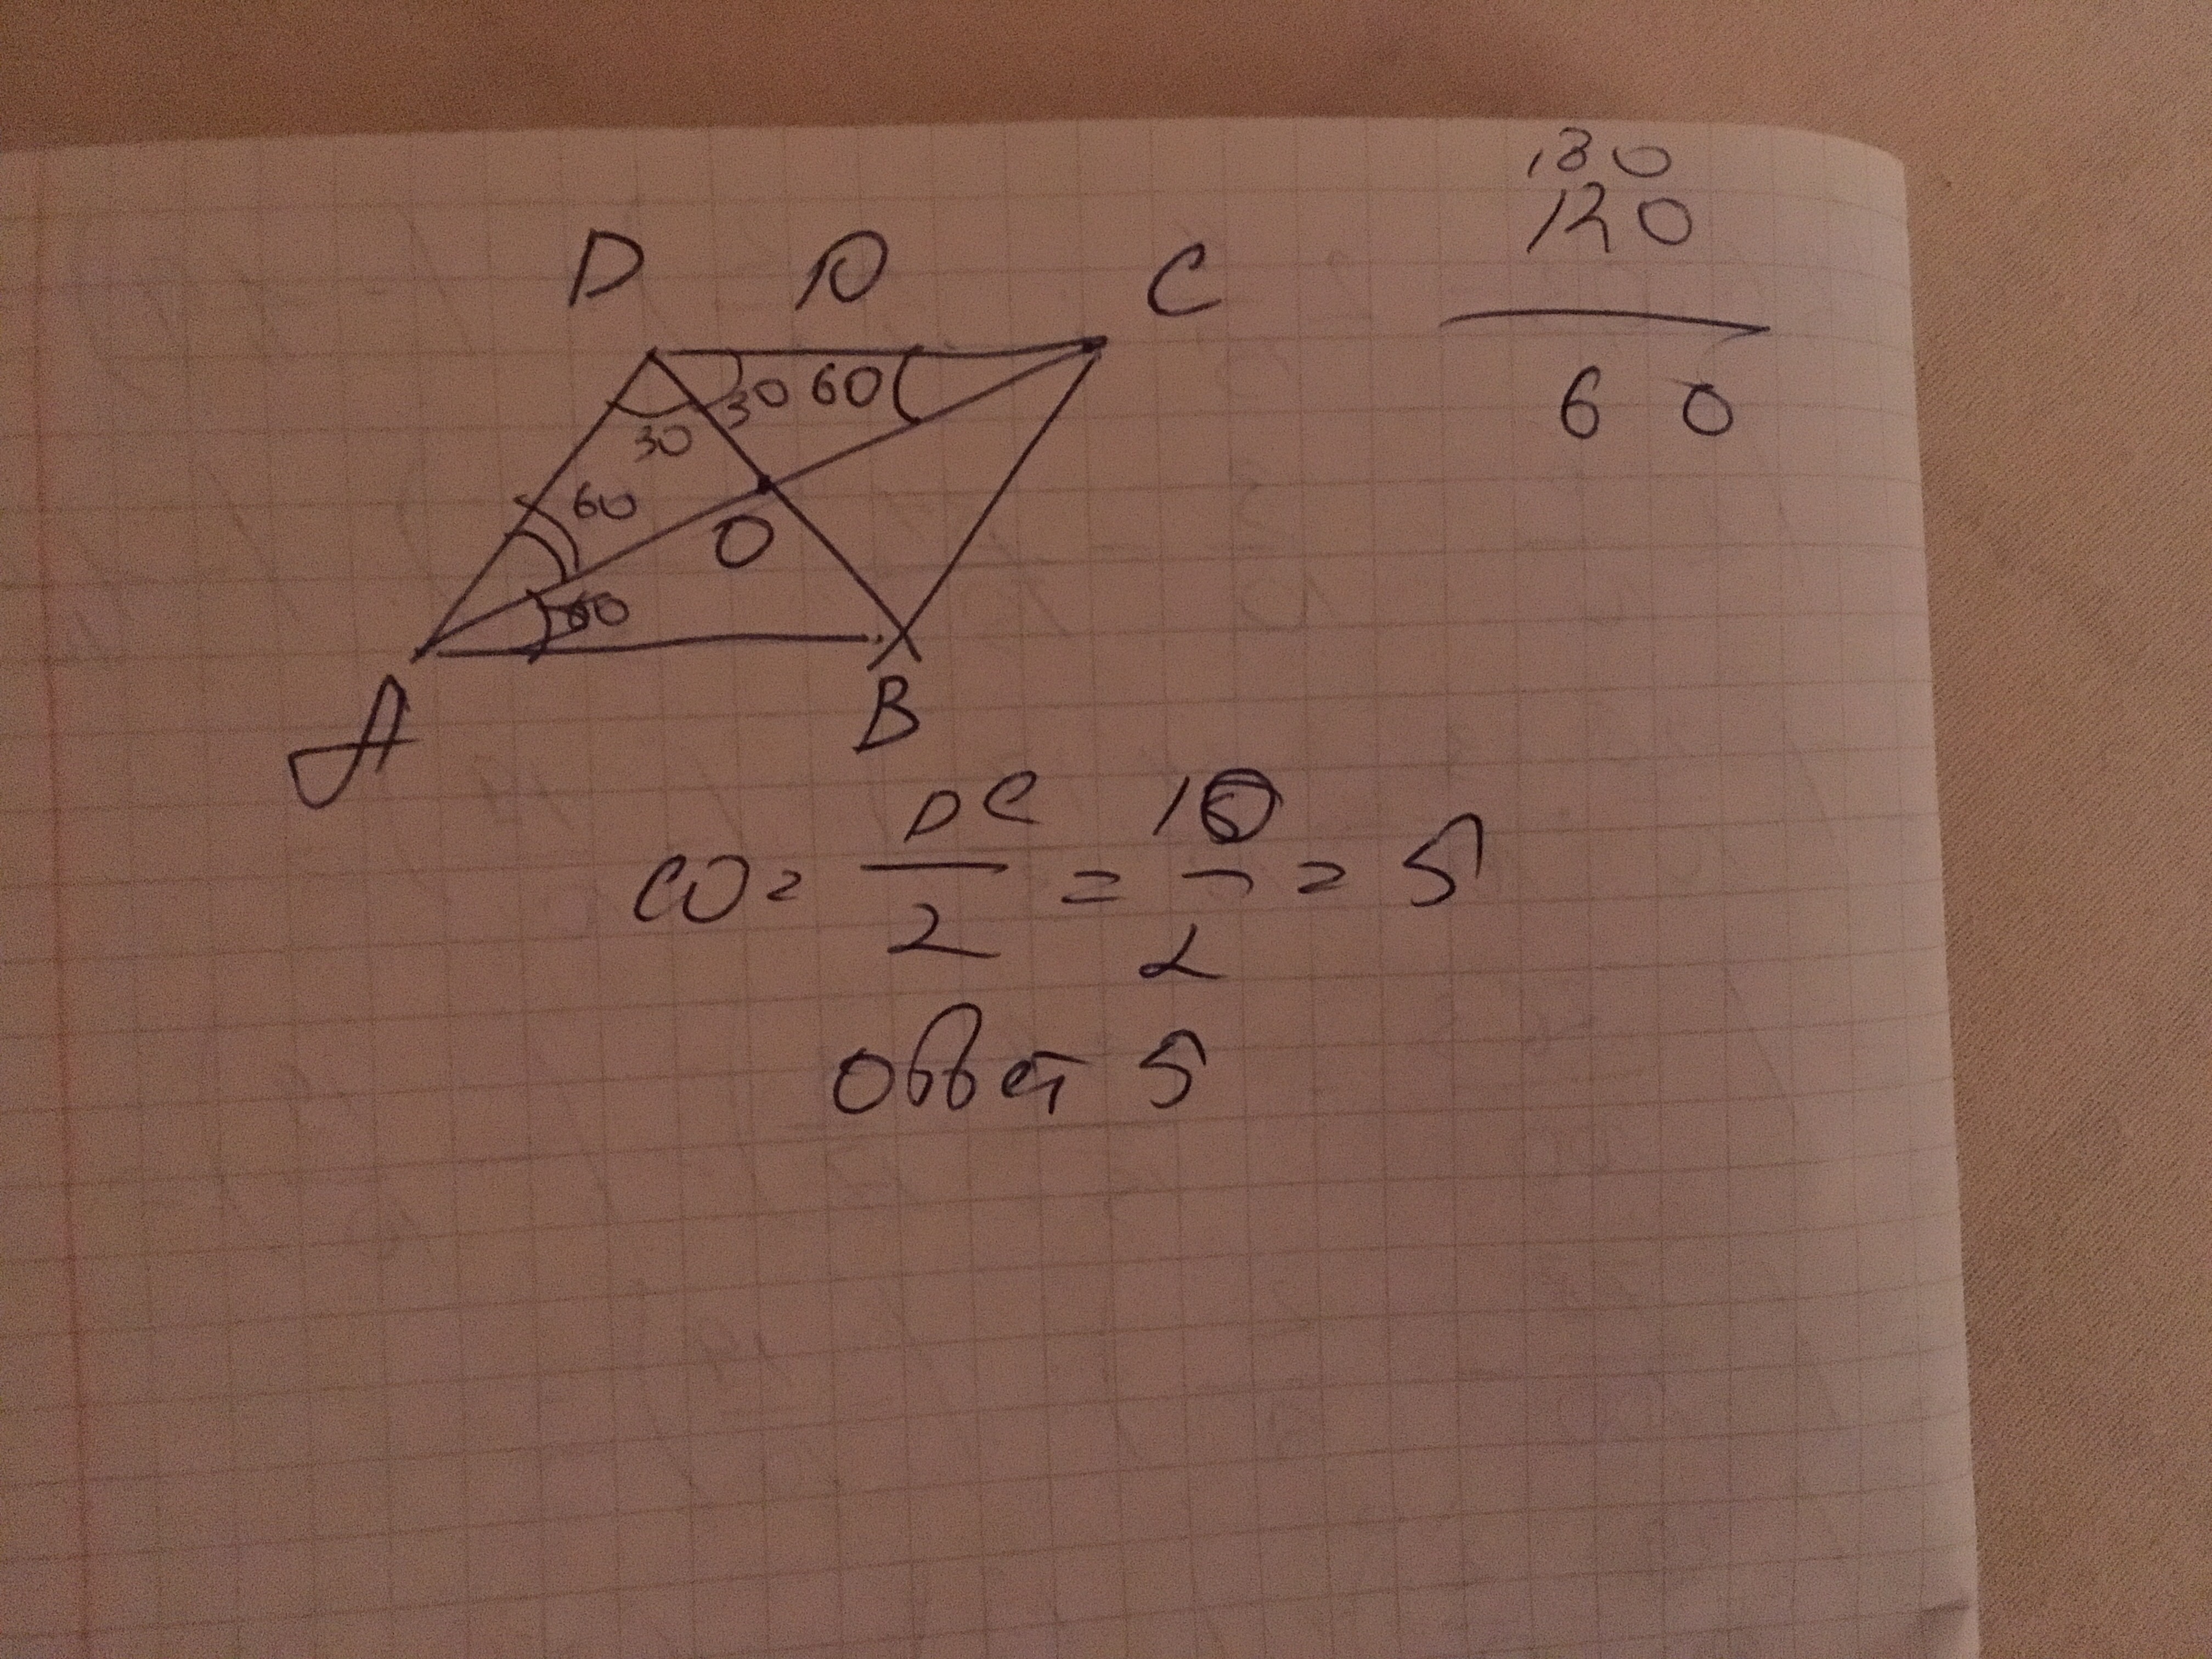 180
120
60
D 10 C
30 60
30
60
O
60
A
B
CO = DC/2 = 10/2 = 5
Ответ 5